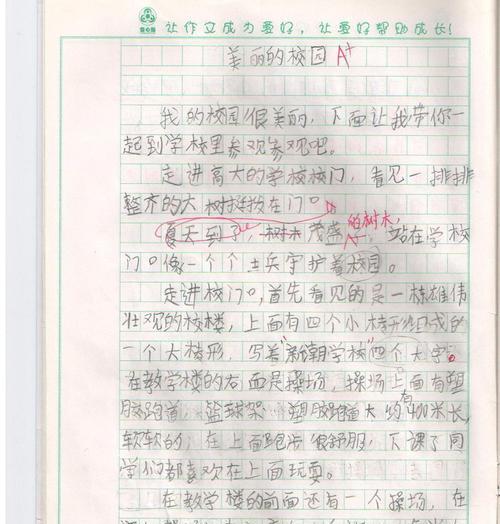 让作文成为爱好，让爱好帮助成长！
美丽的校园 A+
我的校园很美丽，下面让我带你一
起到学校里参观参观吧。
走进高大的学校校门，看见一排排
整齐的大树挺拔在门口
的树木，
夏天到了，树木茂盛 A+，站在学校
门口像一个个士兵守护着校园。
走进校门口，首先看见的是一栋雄伟
壮观的校楼，上面有四个小梯形组成的
一个大梯形，写着"新朝学校"四个大字。
在教学楼的右面是操场，操场上面有塑
有
胶跑道、篮球架、塑胶跑道大约400米长，
软软的，在上面跑步很舒服，下课了同
学们都喜欢在上面玩耍。
在教学楼的前面还有一个操场，在